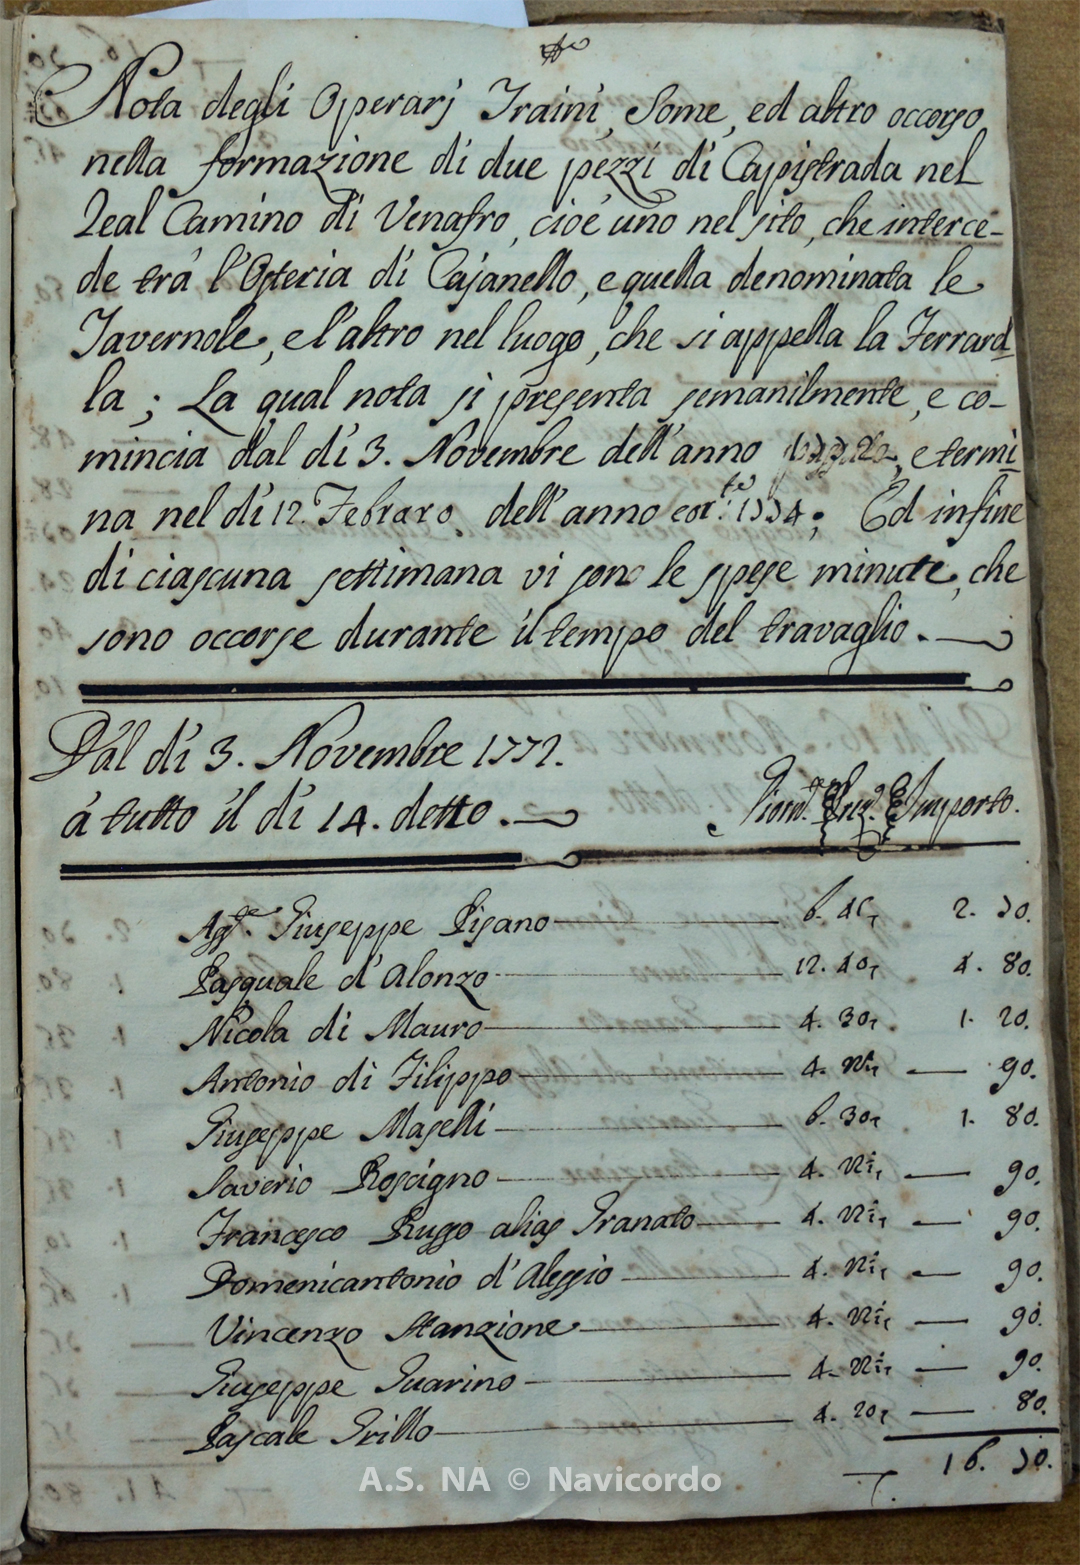 Nota degli Operarj Traini, Some, ed altro occorso
nella formazione di due pezzi di Capistrada nel
Real Camino di Venafro, cioè uno nel sito, che interce-
de trà l'Osteria di Cajanello, e quella denominata le
Tavernole, e l'altro nel luogo, che si appella la Ferrarel-
la; La qual nota si presenta semanilmente, e co-
mincia dal dì 3. Novembre dell'anno e termi-
na nel dì 12. Febraro dell'anno cor.te 1774; Ed infine
di ciascuna settimana vi sono le spese minute, che
sono occorse durante il tempo del travaglio.
Dal dì 3. Novembre 1772.
à tutto il dì 14. detto.
Importo.
Ag.te Giuseppe Pisano 6. 45 2. 70.
Pasquale d'Alonzo 12. 40 4. 80.
Nicola di Mauro 4. 30 1. 20.
Antonio di Filippo 4. 22½ 90.
Giuseppe Maselli 6. 30 1. 80.
Saverio Roscigno 4. 22½ 90.
Francesco Russo alias Granato 4. 22½ 90.
Domenicantonio d'Alessio 4. 22½ 90.
Vincenzo Manzione 4. 22½ 90.
Giuseppe Guarino 4. 22½ 90.
Pascale Grillo 4. 20 80.
16. 70.
A.S. NA © Navicordo